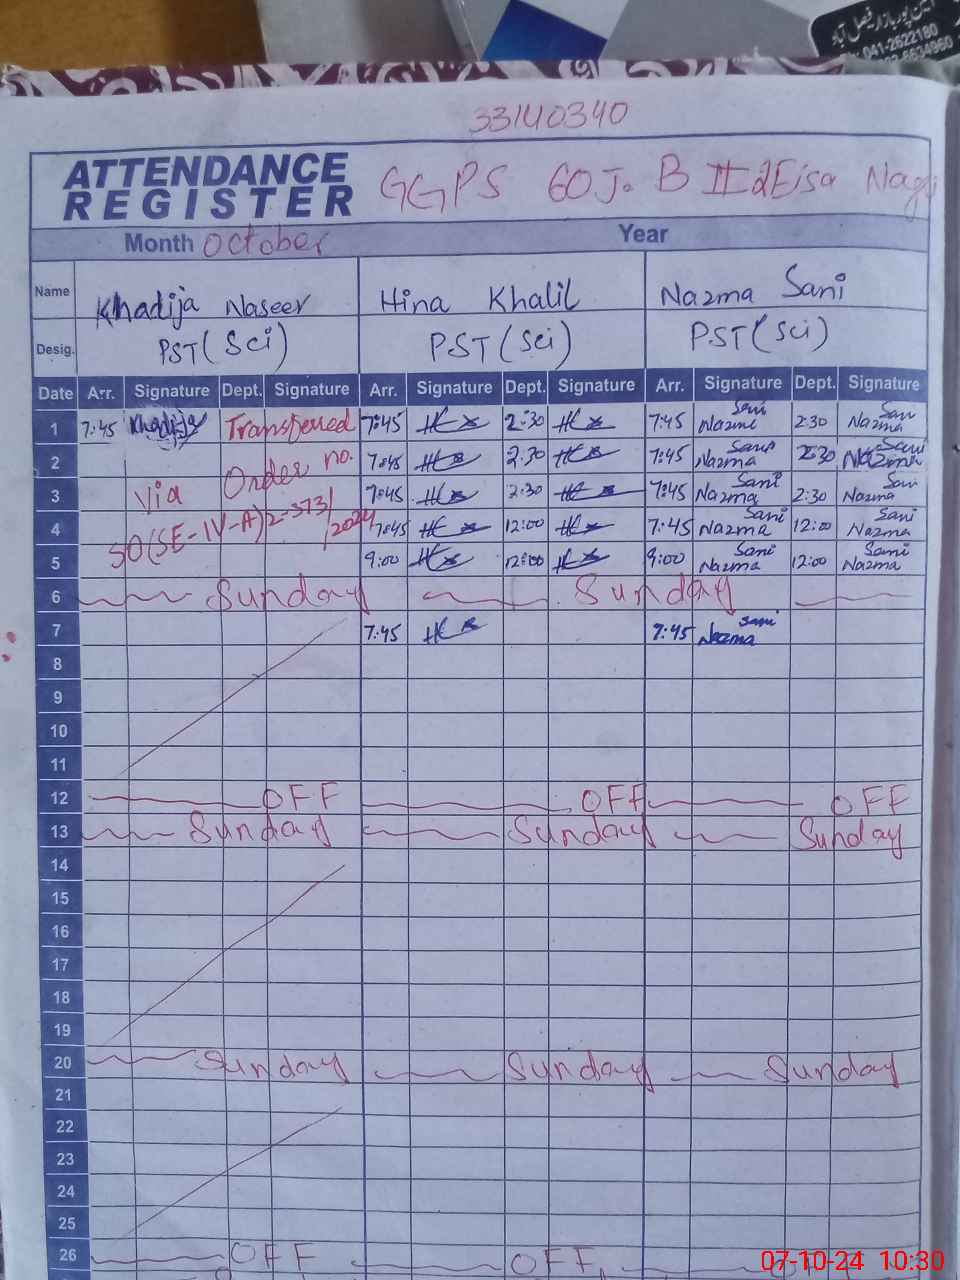 041-2622180
33140340
ATTENDANCE
REGISTER
GGPS 60 J. B II
Month October Year
Name Khadija Naseer Hina Khalil Nazma Sani
Desig. PST (Sci) PST (Sci) PST (Sci)
Date Arr. Signature Dept. Signature Arr. Signature Dept. Signature Arr. Signature Dept. Signature
1 7:45 Khadija Transferred 7:45 2:30 7:45 Nazma Sani 2:30 Nazma Sani
2 Order no. 7:45 2:30 7:45 Nazma Sani 2:30 Nazma Sani
3 Via 7:45 2:30 7:45 Nazma Sani 2:30 Nazma Sani
4 SO(SE-IV-A)2-373/2024 7:45 12:00 7:45 Nazma Sani 12:00 Nazma Sani
5 9:00 12:00 9:00 Nazma Sani 12:00 Nazma Sani
6 Sunday Sunday
7 7:45 7:45 Nazma Sani
8
9
10
11
12 OFF OFF OFF
13 Sunday Sunday Sunday
14
15
16
17
18
19
20 Sunday Sunday Sunday
21
22
23
24
25
26 OFF OFF
07-10-24 10:30